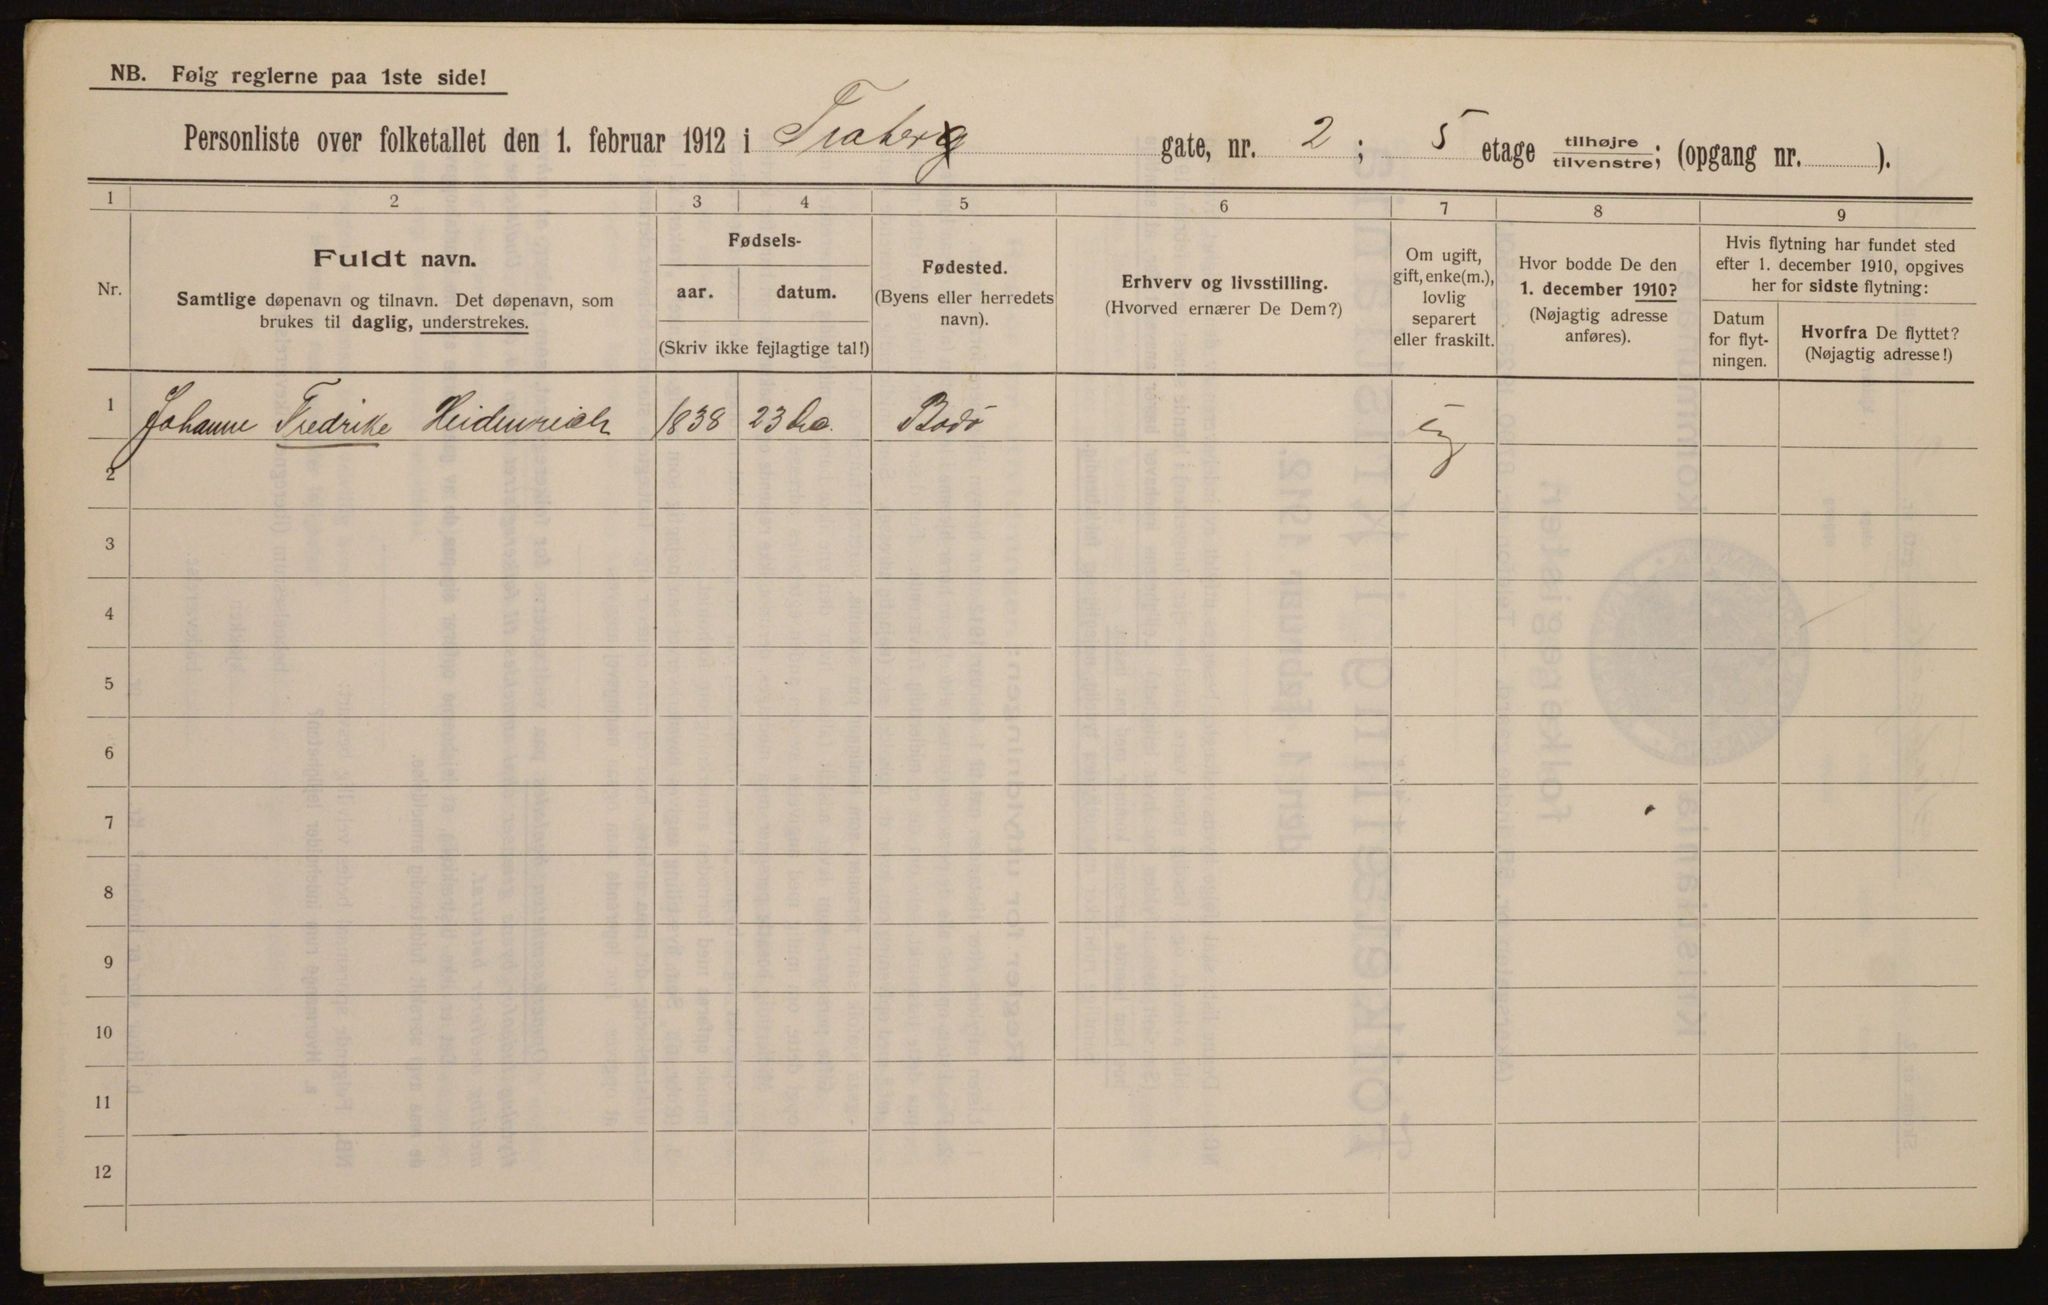 NB. Følg reglerne paa 1ste side!
Personliste over folketallet den 1. februar 1912 i Fraberg gate, nr. 2; 5 etage tilhøjre/tilvenstre; (opgang nr. ).
1 2 3 4 5 6 7 8 9
Nr.
Fuldt navn.
Samtlige døpenavn og tilnavn. Det døpenavn, som
brukes til daglig, understrekes.
Fødsels-
aar. datum.
(Skriv ikke fejlagtige tal!)
Fødested.
(Byens eller herredets
navn).
Erhverv og livsstilling.
(Hvorved ernærer De Dem?)
Om ugift,
gift, enke(m.),
lovlig
separert
eller fraskilt.
Hvor bodde De den
1. december 1910?
(Nøjagtig adresse
anføres).
Hvis flytning har fundet sted
efter 1. december 1910, opgives
her for sidste flytning:
Datum
for flyt-
ningen.
Hvorfra De flyttet?
(Nøjagtig adresse!)
1 Johanne Fredrike Heidenreich 1838 23 Dec. Bodø ug
2
3
4
5
6
7
8
9
10
11
12